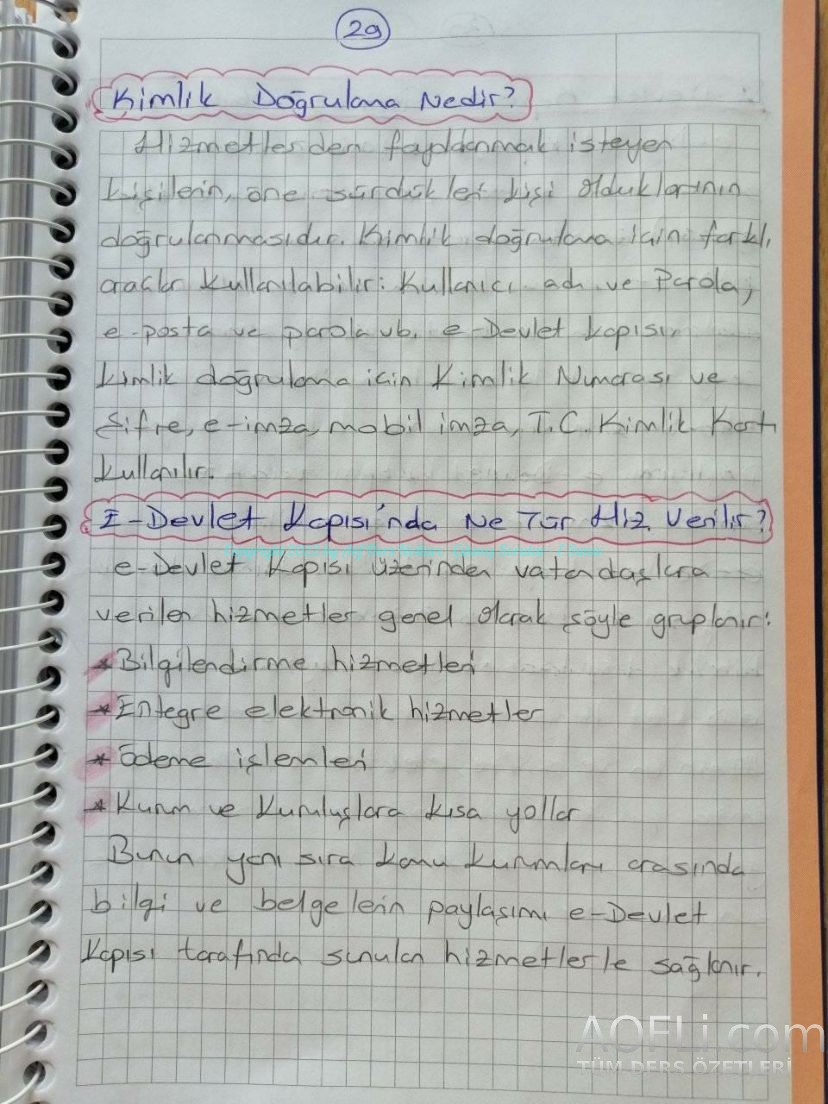 29
Kimlik Doğrulama Nedir?
Hizmetlerden faydalanmak isteyen
kişilerin, öne sürdükleri kişi olduklarının
doğrulanmasıdır. Kimlik doğrulama için farklı
araçlar kullanılabilir: Kullanıcı adı ve Parola,
e-posta ve parola vb. e-Devlet kapısı,
kimlik doğrulama için Kimlik Numarası ve
Şifre, e-imza, mobil imza, T.C. Kimlik Kartı
kullanılır.
E-Devlet Kapısı'nda Ne Tür Hiz. Verilir?
e-Devlet Kapısı üzerinden vatandaşlara
verilen hizmetler genel olarak şöyle gruplanır:
* Bilgilendirme hizmetleri
* Entegre elektronik hizmetler
* Ödeme işlemleri
* Kurum ve Kuruluşlara kısa yollar
Bunun yanı sıra kamu kurumları arasında
bilgi ve belgelerin paylaşımı e-Devlet
Kapısı tarafında sunulan hizmetlerle sağlanır.
AOFLi.com
TÜM DERS ÖZETLERİ